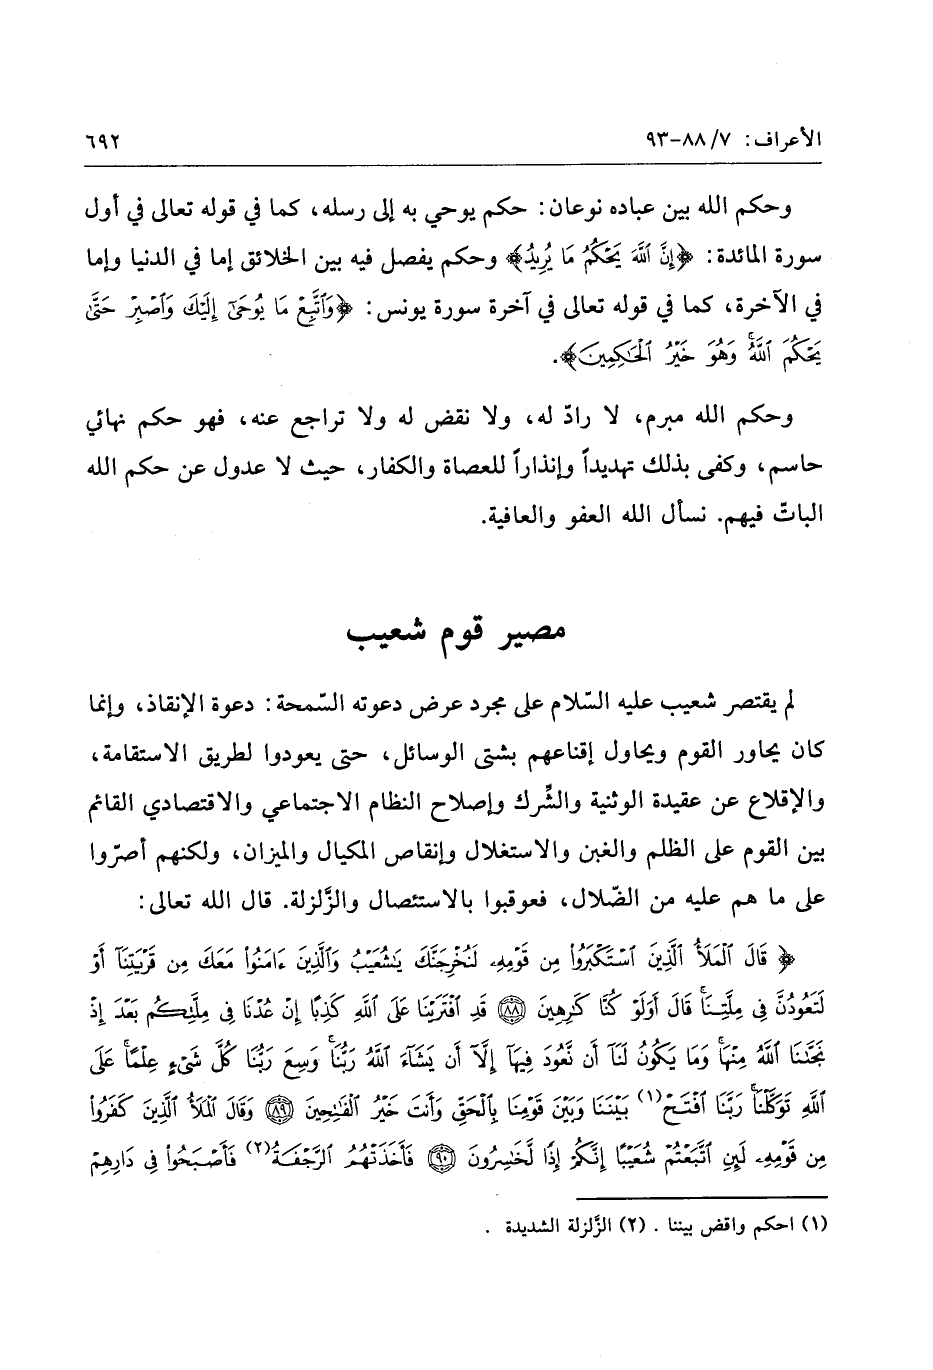 الأعراف: ٧/ ٨٨-٩٣ ٦٩٢
وحكم الله بين عباده نوعان: حكم يوحي به إلى رسله، كما في قوله تعالى في أول
سورة المائدة: ﴿إِنَّ ٱللَّهَ يَحْكُمُ مَا يُرِيدُ﴾ وحكم يفصل فيه بين الخلائق إما في الدنيا وإما
في الآخرة، كما في قوله تعالى في آخرة سورة يونس: ﴿وَٱتَّبِعْ مَا يُوحَىٰٓ إِلَيْكَ وَٱصْبِرْ حَتَّىٰ
يَحْكُمَ ٱللَّهُ ۚ وَهُوَ خَيْرُ ٱلْحَٰكِمِينَ﴾.
وحكم الله مبرم، لا رادّ له، ولا نقض له ولا تراجع عنه، فهو حكم نهائي
حاسم، وكفى بذلك تهديداً وإنذاراً للعصاة والكفار، حيث لا عدول عن حكم الله
الباتّ فيهم. نسأل الله العفو والعافية.
مصير قوم شعيب
لم يقتصر شعيب عليه السّلام على مجرد عرض دعوته السّمحة: دعوة الإنقاذ، وإنما
كان يحاور القوم ويحاول إقناعهم بشتى الوسائل، حتى يعودوا لطريق الاستقامة،
والإقلاع عن عقيدة الوثنية والشِّرك وإصلاح النظام الاجتماعي والاقتصادي القائم
بين القوم على الظلم والغبن والاستغلال وإنقاص المكيال والميزان، ولكنهم أصرّوا
على ما هم عليه من الضّلال، فعوقبوا بالاستئصال والزَّلزلة. قال الله تعالى:
﴿ قَالَ ٱلْمَلَأُ ٱلَّذِينَ ٱسْتَكْبَرُوا۟ مِن قَوْمِهِۦ لَنُخْرِجَنَّكَ يَٰشُعَيْبُ وَٱلَّذِينَ ءَامَنُوا۟ مَعَكَ مِن قَرْيَتِنَآ أَوْ
لَتَعُودُنَّ فِى مِلَّتِنَا ۚ قَالَ أَوَلَوْ كُنَّا كَٰرِهِينَ ﴿٨٨﴾ قَدِ ٱفْتَرَيْنَا عَلَى ٱللَّهِ كَذِبًا إِنْ عُدْنَا فِى مِلَّتِكُم بَعْدَ إِذْ
نَجَّىٰنَا ٱللَّهُ مِنْهَا ۚ وَمَا يَكُونُ لَنَآ أَن نَّعُودَ فِيهَآ إِلَّآ أَن يَشَآءَ ٱللَّهُ رَبُّنَا ۚ وَسِعَ رَبُّنَا كُلَّ شَىْءٍ عِلْمًا ۚ عَلَى
ٱللَّهِ تَوَكَّلْنَا ۚ رَبَّنَا ٱفْتَحْ(١) بَيْنَنَا وَبَيْنَ قَوْمِنَا بِٱلْحَقِّ وَأَنتَ خَيْرُ ٱلْفَٰتِحِينَ ﴿٨٩﴾ وَقَالَ ٱلْمَلَأُ ٱلَّذِينَ كَفَرُوا۟
مِن قَوْمِهِۦ لَئِنِ ٱتَّبَعْتُمْ شُعَيْبًا إِنَّكُمْ إِذًا لَّخَٰسِرُونَ ﴿٩٠﴾ فَأَخَذَتْهُمُ ٱلرَّجْفَةُ(٢) فَأَصْبَحُوا۟ فِى دَارِهِمْ
(١) احكم واقض بيننا . (٢) الزَّلزلة الشديدة .